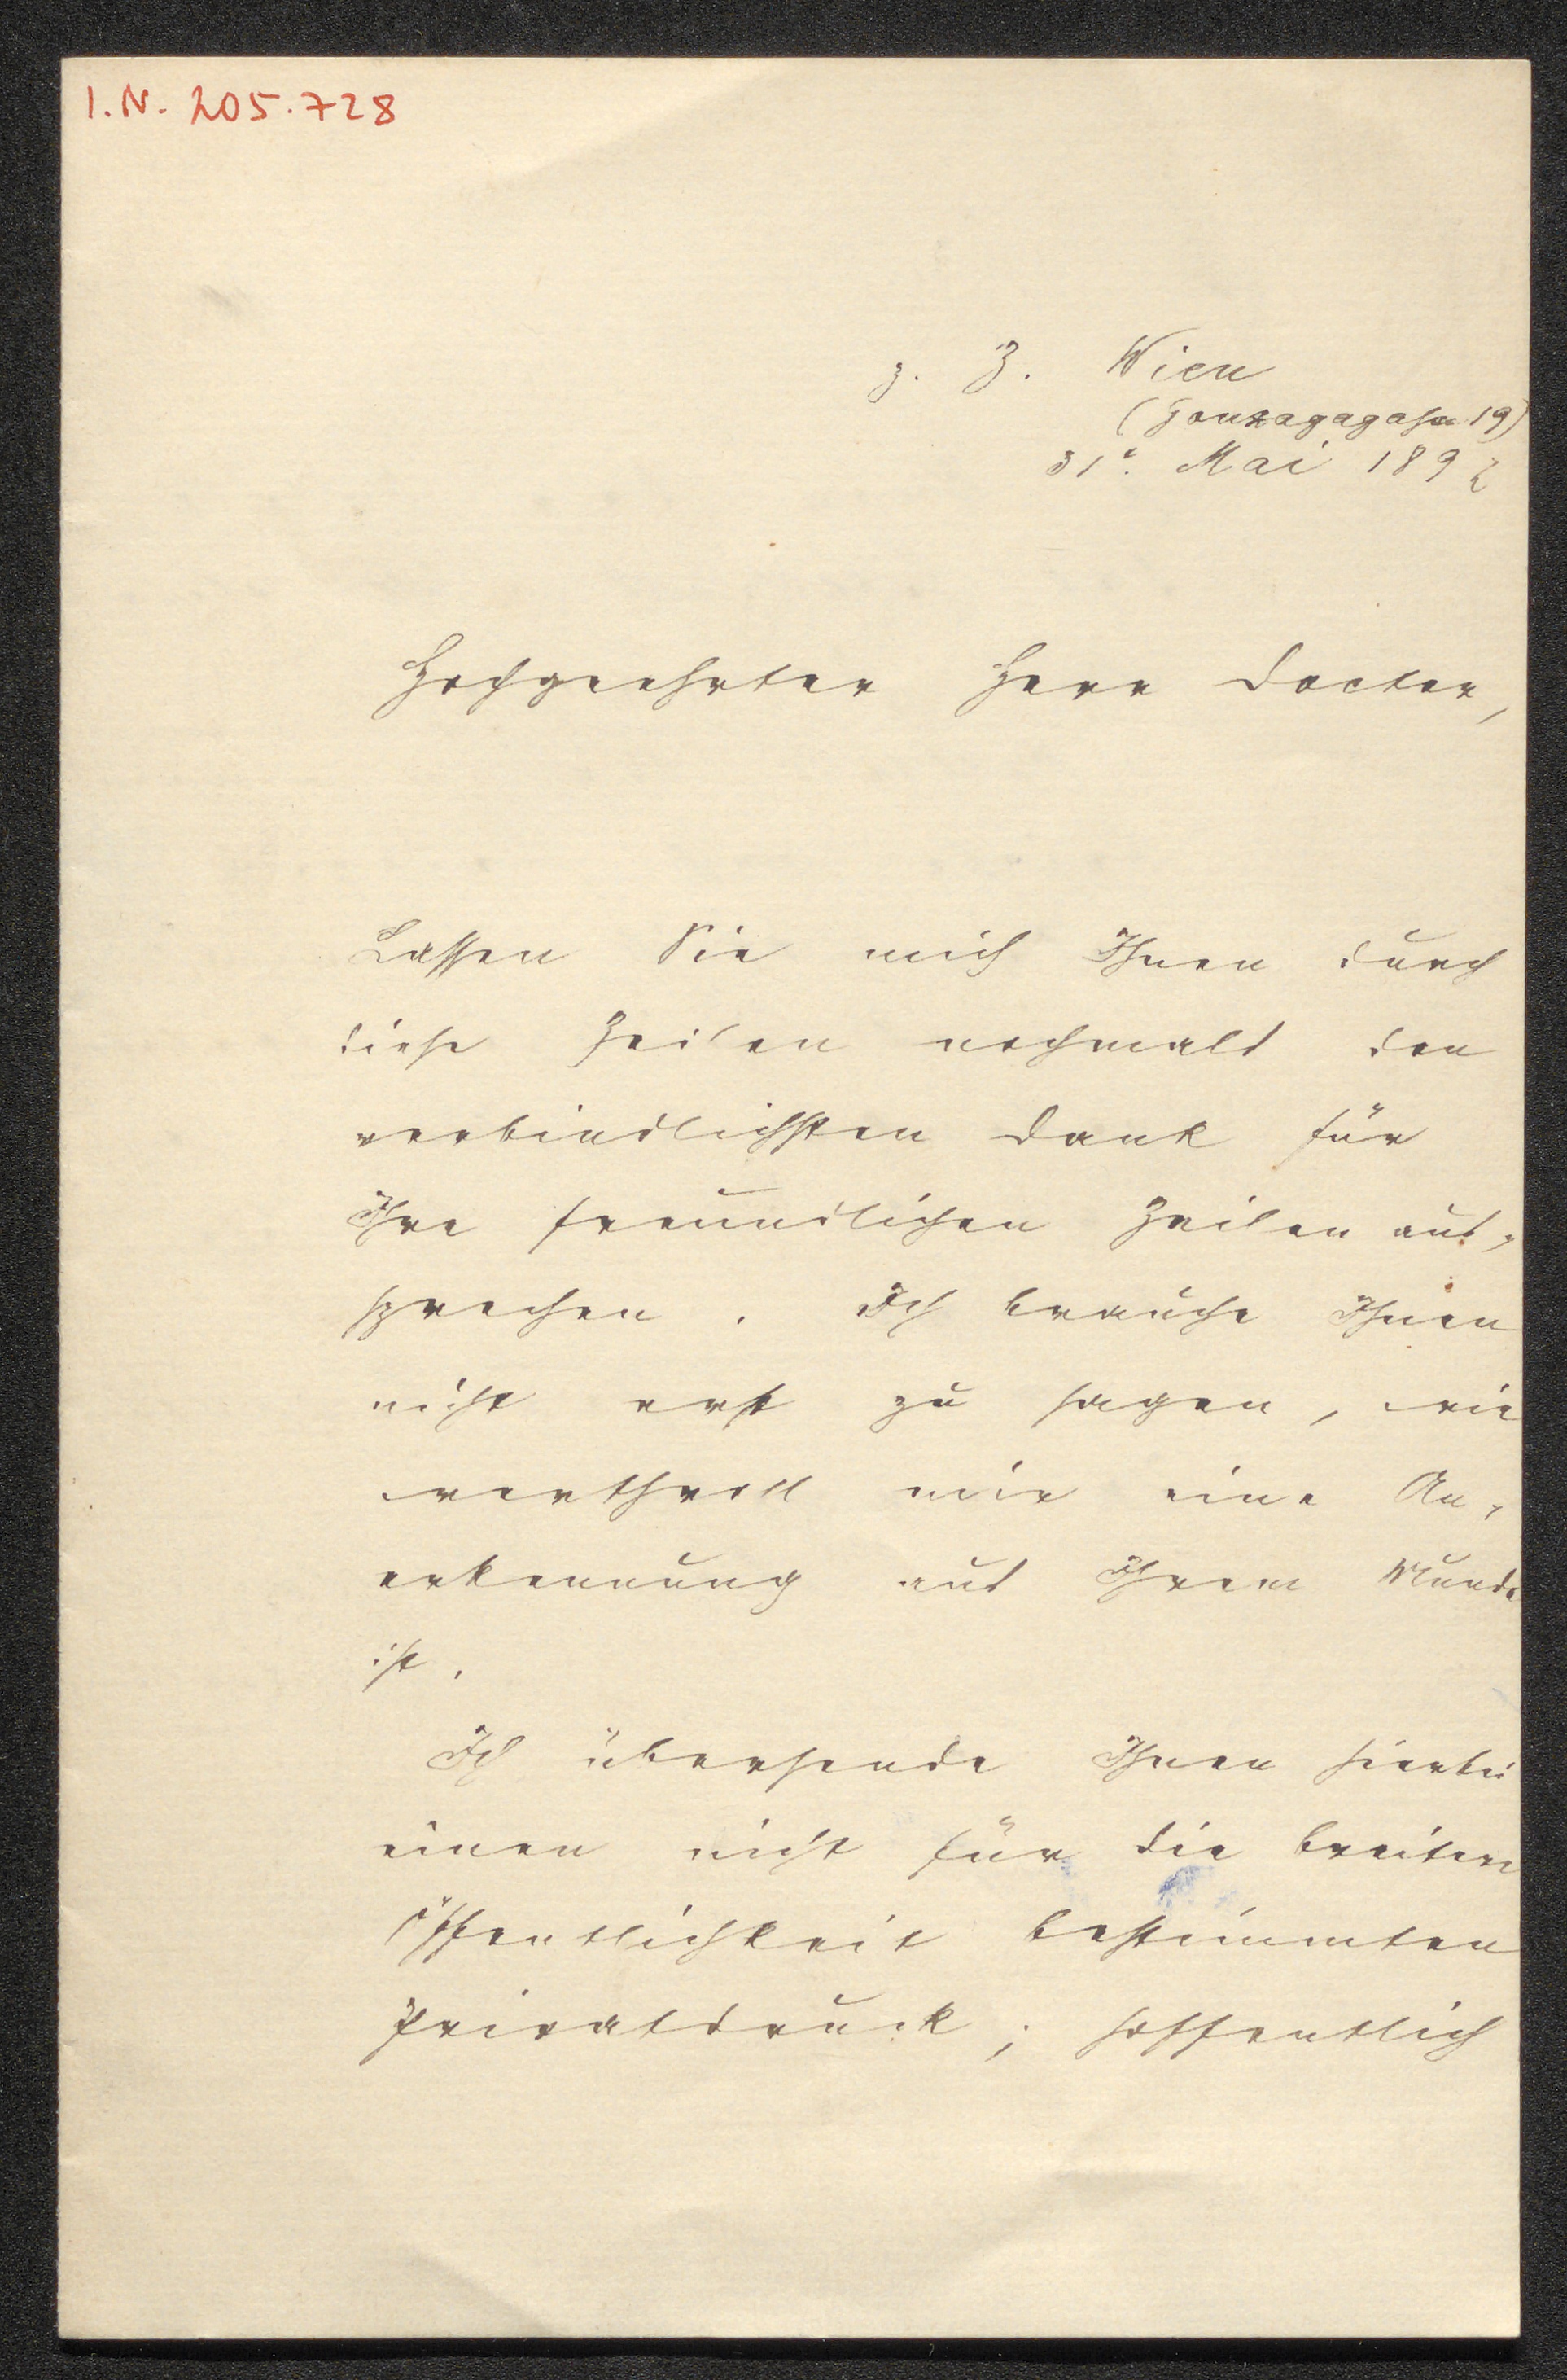 I.N. 205.728
z. Z. Wien
(Gonzagagasse 19)
31. Mai 1892
Hochgeehrter Herr Doctor,
Lassen Sie mich Ihnen durch
diese Zeilen nochmals den
verbindlichsten Dank für
Ihre freundlichen Zeilen aus-
sprechen. Ich brauche Ihnen
nicht erst zu sagen, wie
werthvoll mir eine An-
erkennung aus Ihrem Munde
ist.
Ich übersende Ihnen hierbei
einen nicht für die breitere
Öffentlichkeit bestimmten
Privatdruck; hoffentlich